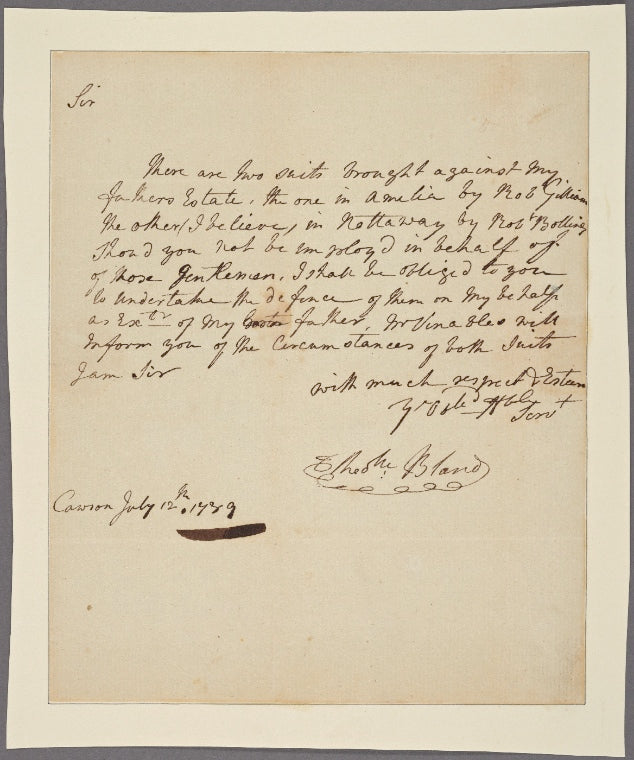 Sir
There are two suits brought against my
fathers Estate. the one in Amelia by Robt Gilliam
the other (I believe) in Nottaway by Robt Bolling
Shoud you not be imployd in behalf of
of those Gentlemen, I shall be obliged to you
to undertake the defence of them on my behalf
as Extr of my father, Mr Vinables will
inform you of the Circumstances of both Suits
I am Sir
with much respect & Esteem
Yr Obed Hble
Servt
Theok. Bland
Cawson July 12th. 1789